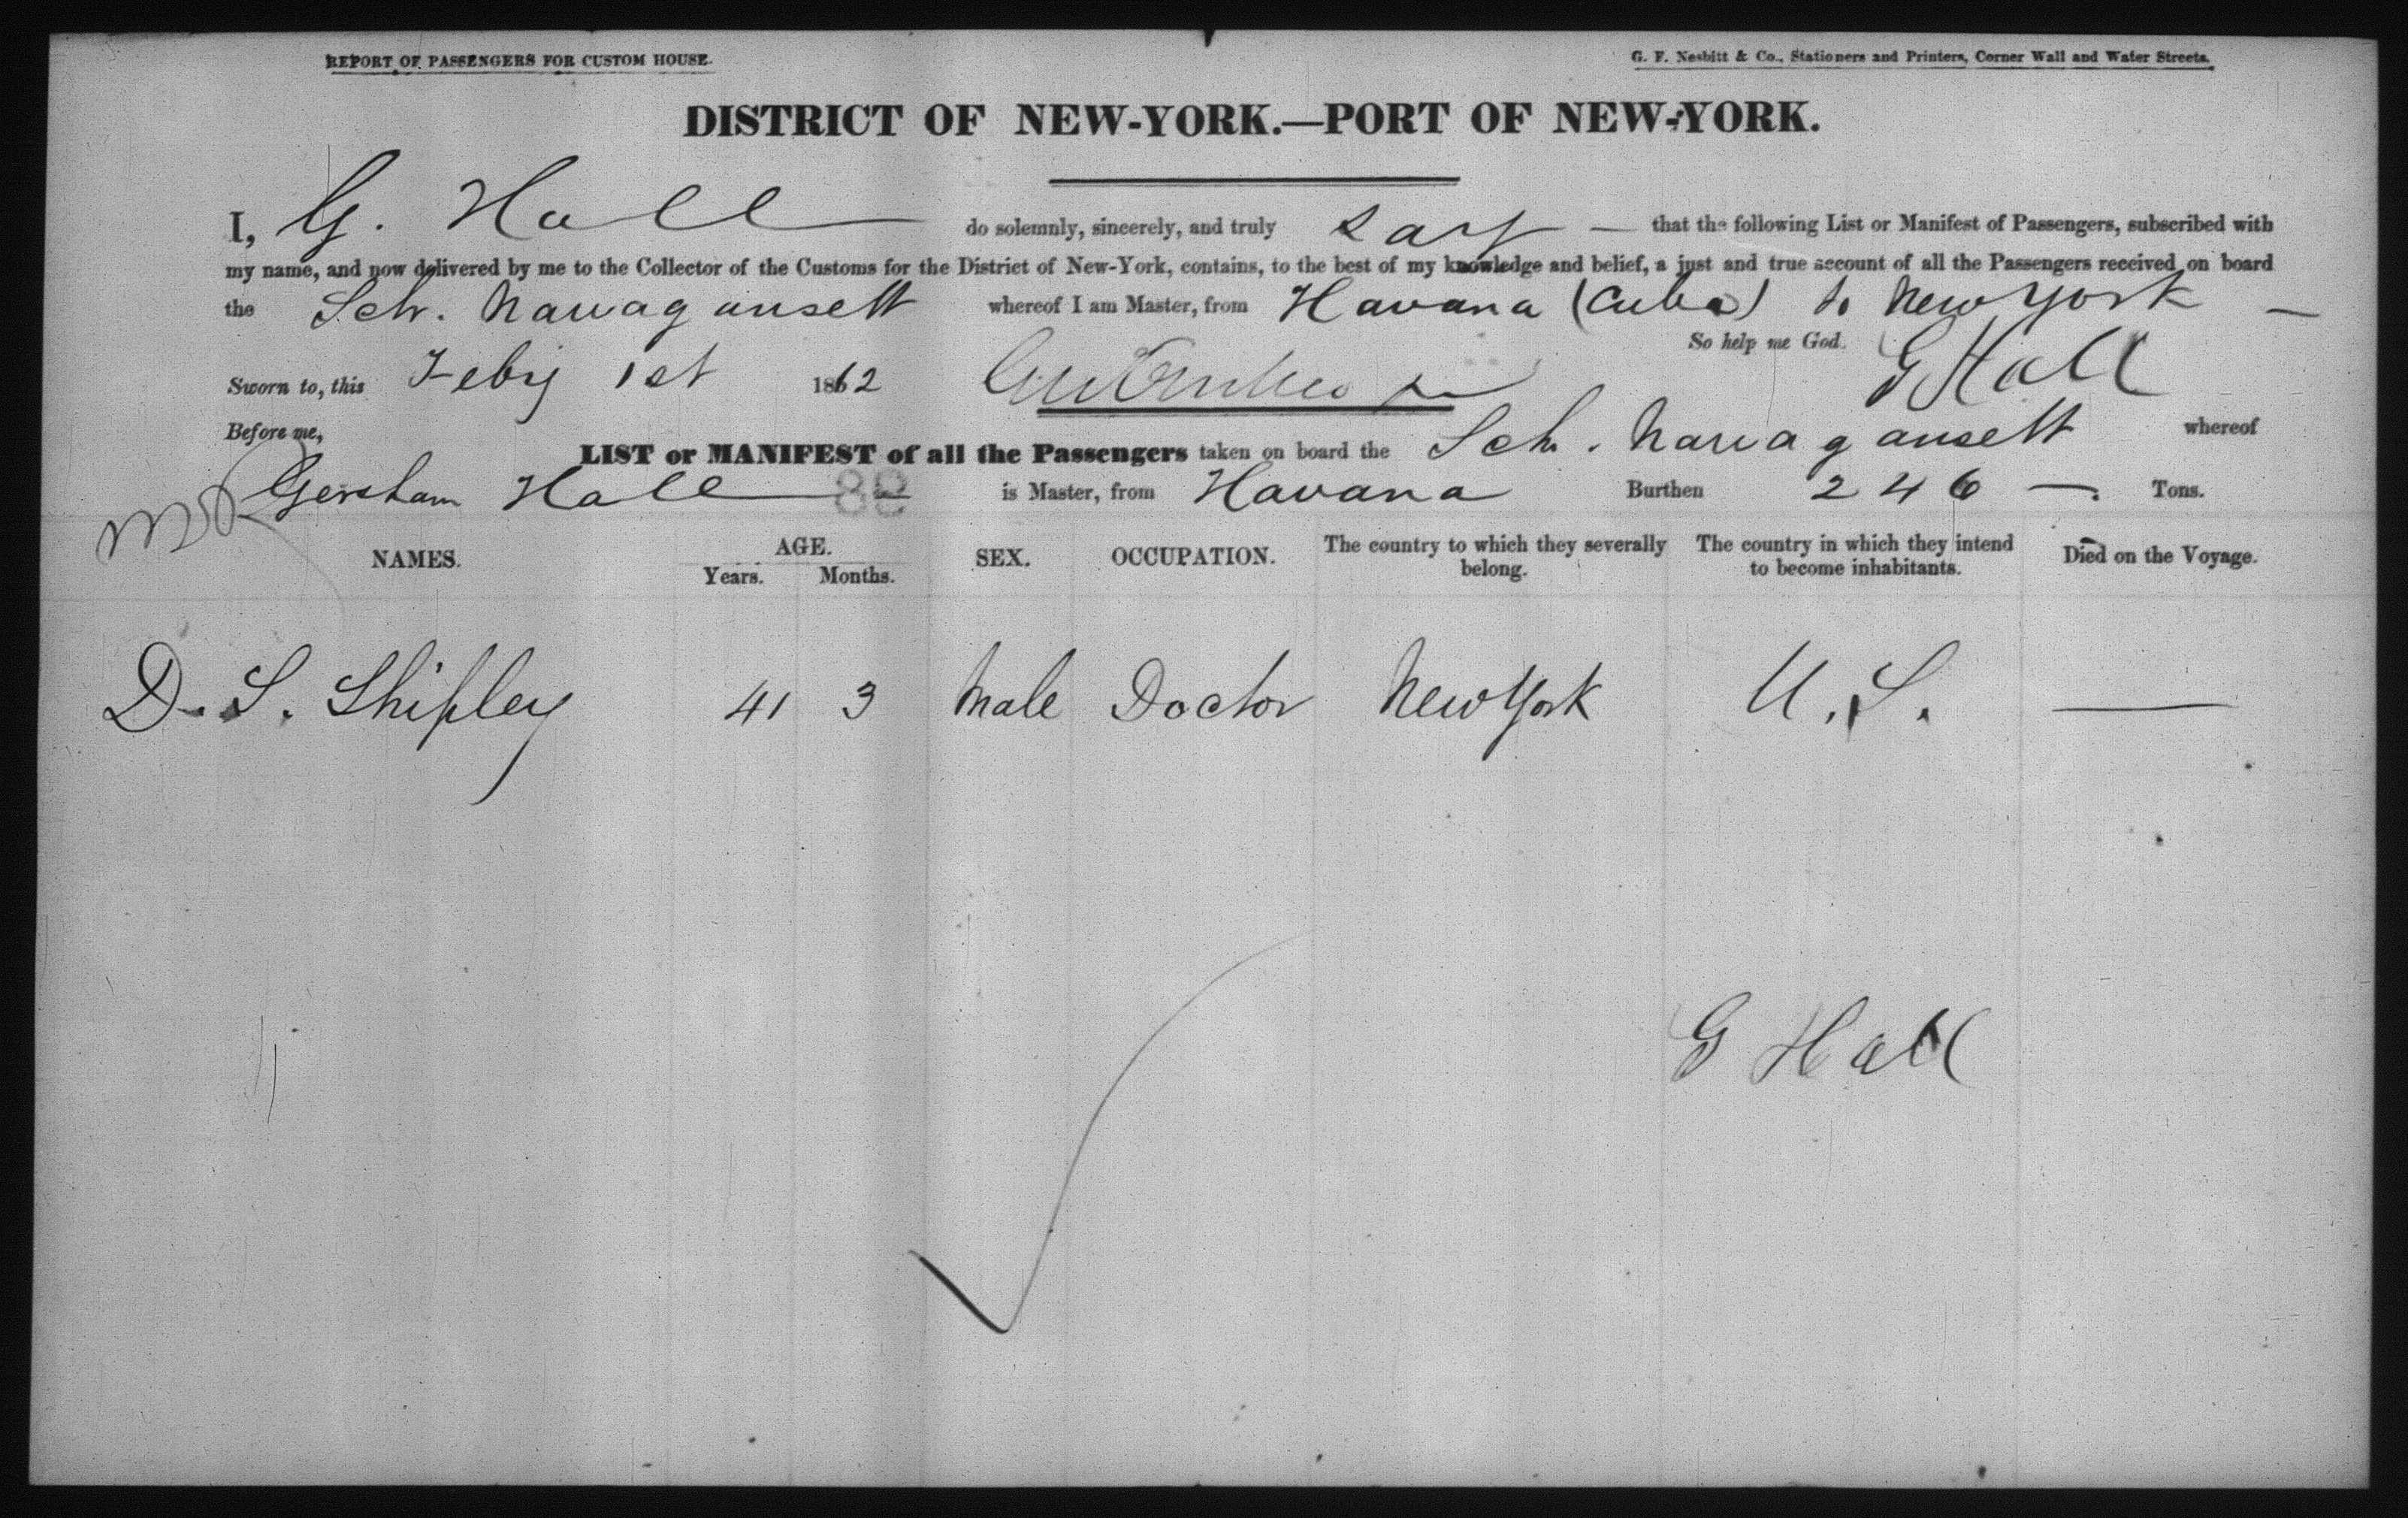 REPORT OF PASSENGERS FOR CUSTOM HOUSE.
G. F. Nesbitt & Co., Stationers and Printers, Corner Wall and Water Streets.
DISTRICT OF NEW-YORK.—PORT OF NEW-YORK.
I, G. Hall do solemnly, sincerely, and truly say — that the following List or Manifest of Passengers, subscribed with
my name, and now delivered by me to the Collector of the Customs for the District of New-York, contains, to the best of my knowledge and belief, a just and true account of all the Passengers received on board
the Sch. Narragansett whereof I am Master, from Havana (Cuba) to New York —
So help me God. G Hall
Sworn to, this Feby 1st 1862
Before me,
LIST or MANIFEST of all the Passengers taken on board the Sch. Narragansett whereof
Gersham Hall 88 is Master, from Havana Burthen 246 —. Tons.
NAMES. AGE. Years. Months. SEX. OCCUPATION. The country to which they severally belong. The country in which they intend to become inhabitants. Died on the Voyage.
D. S. Shipley 41 3 Male Doctor New York U. S. —
G Hall